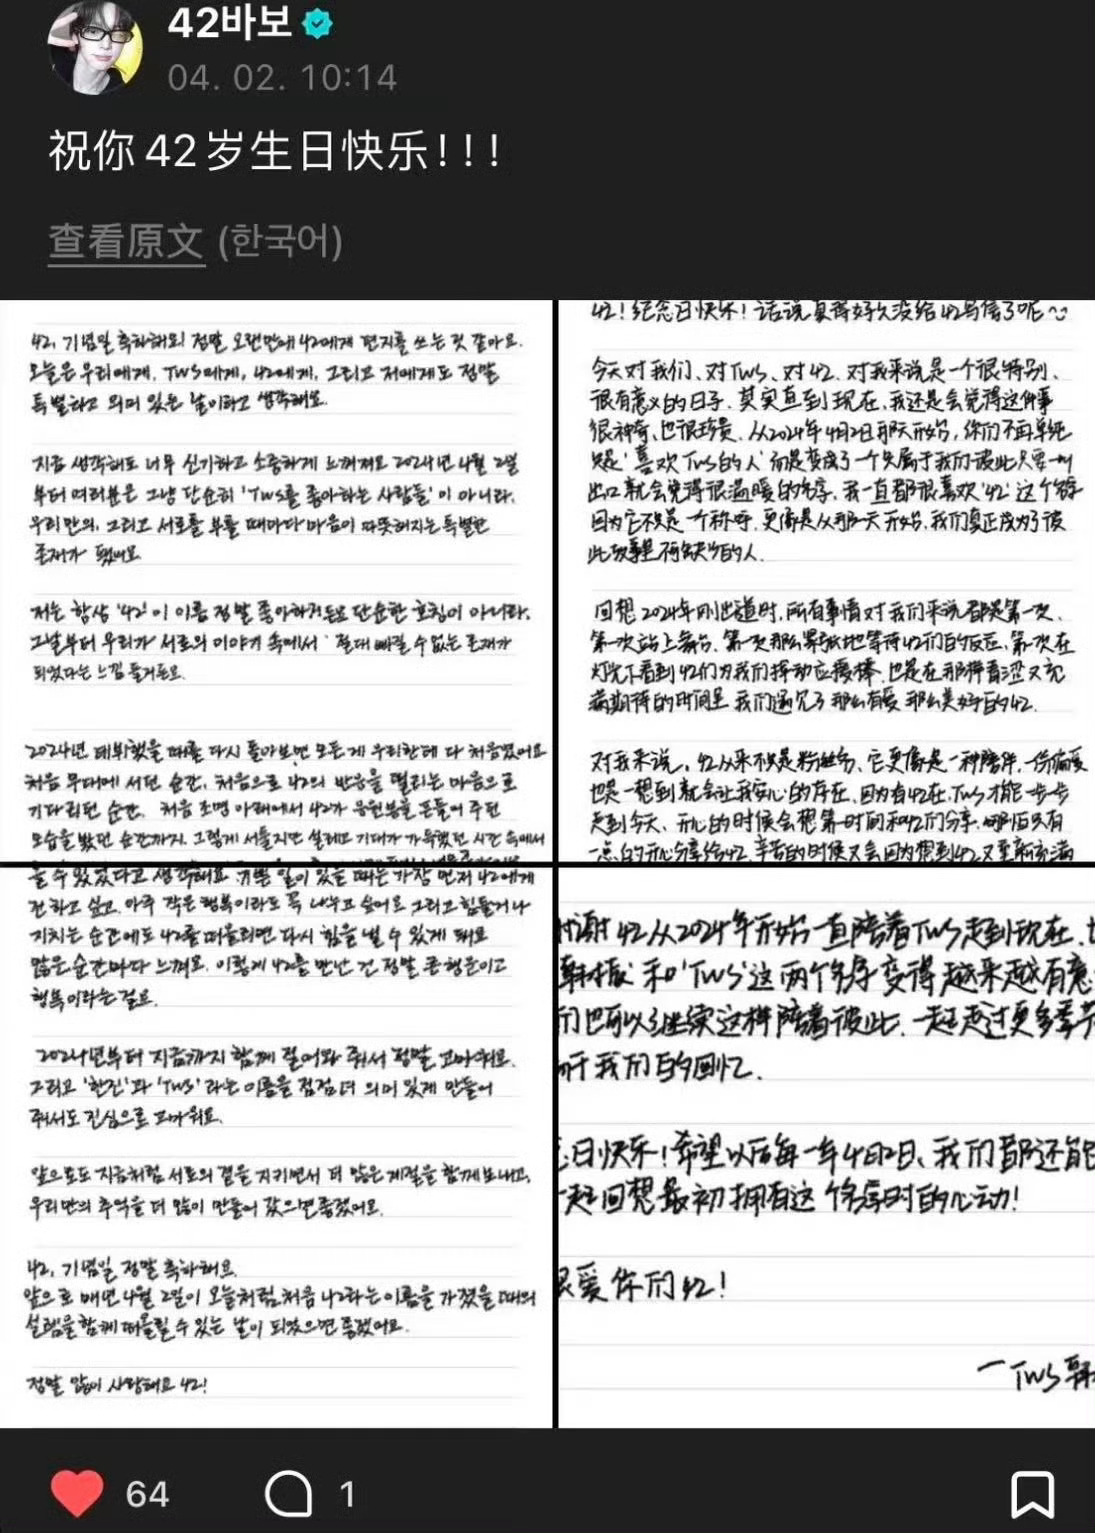 42바보
04. 02. 10:14
祝你42岁生日快乐！！！
查看原文 (한국어)
42, 기념일 축하해요! 정말 오랜만에 42에게 편지를 쓰는 것 같아요.
오늘은 우리에게, TWS에게, 42에게, 그리고 저에게도 정말
특별하고 의미 있는 날이라고 생각해요.
지금 생각해도 너무 신기하고 소중하게 느껴져요 2024년 4월 2일
부터 여러분은 그냥 단순히 'TWS를 좋아하는 사람들'이 아니라,
우리만의, 그리고 서로를 부를 때마다 마음이 따뜻해지는 특별한
존재가 됐어요
저는 항상 '42' 이 이름 정말 좋아하거든요 단순한 호칭이 아니라,
그날부터 우리가 서로의 이야기 속에서 절대 빠질 수 없는 존재가
되었다는 느낌 들거든요.
2024년 데뷔했을 때를 다시 돌아보면 모든 게 우리한테 다 처음였어요
처음 무대에 서던 순간, 처음으로 42의 반응을 떨리는 마음으로
기다리던 순간, 처음 조명 아래에서 42가 응원봉을 흔들어 주던
모습을 봤던 순간까지. 그렇게 서툴지만 설레고 기대가 가득했던 시간 속에서
42！纪念日快乐！话说真得好久没给42写信了呢~
今天对我们、对TWS、对42、对我来说是一个很特别、
很有意义的日子。其实直到现在，我还是会觉得这件事
很神奇、也很珍贵。从2024年4月2日那天开始，你们不再单纯
只是'喜欢TWS的人'而是变成了一个只属于我们彼此只要一叫
出口就会觉得很温暖的名字。我一直都很喜欢'42'这个名字
因为它不只是一个称呼，更像是从那一天开始，我们真正成为了彼
此故事里不可缺少的人.
回想2024年刚出道时，所有事情对我们来说都是第一次、
第一次站上舞台、第一次那么紧张地等待42们的反应、第一次在
灯光下看到42们为我们挥动应援棒、也是在那种青涩又充
满期待的时间里 我们遇见了那么有爱 那么美好的42.
对我来说、42从来不只是粉丝名、它更像是一种陪伴、一份偏爱
也是一想到就会让我安心的存在、因为有42在，TWS才能一步一步
走到今天、开心的时候会想第一时间和42们分享、哪怕只有
一点的开心分享给42、辛苦的时候又会因为想到42又重新充满
을 수 있었다고 생각해요 기쁜 일이 있을 때는 가장 먼저 42에게
전하고 싶고. 아주 작은 행복이라도 꼭 나누고 싶어요 그리고 힘들거나
지치는 순간에도 42를 떠올리면 다시 힘을 낼 수 있게 돼요
많은 순간마다 느껴요. 이렇게 42를 만난 건 정말 큰 행운이고
행복이라는 걸요.
2024년부터 지금까지 함께 걸어와 줘서 정말 고마워요.
그리고 '한진'과 'TWS'라는 이름을 점점 더 의미 있게 만들어
줘서도 진심으로 고마워요.
앞으로도 지금처럼 서로의 곁을 지키면서 더 많은 계절을 함께 보내고,
우리만의 추억을 더 많이 만들어 갔으면 좋겠어요.
42, 기념일 정말 축하해요
앞으로 매년 4월 2일이 오늘처럼 처음 42라는 이름을 가졌을 때의
설렘을 함께 떠올릴 수 있는 날이 되었으면 좋겠어요.
정말 많이 사랑해요 42!
谢42从2024年开始一直陪着TWS走到现在.
韩振'和'TWS'这两个名字变得越来越有意
们也可以继续这样陪着彼此、一起走过更多季节
于我们的回忆.
日快乐！希望以后每一年4月2日、我们都还能
一起回想最初拥有这个名字时的心动！
爱你们42！
一TWS 韩
64
1